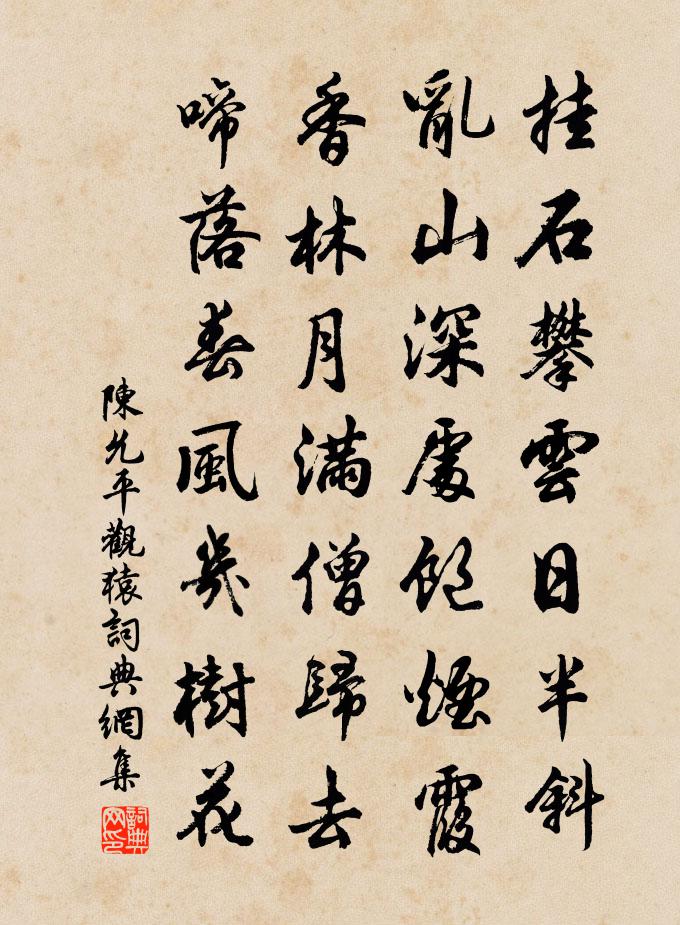 挂石攀雲日半斜
亂山深處飽煙霞
香林月滿僧歸去
啼落春風幾樹花
陳允平觀猿詞典網集
詞典网印